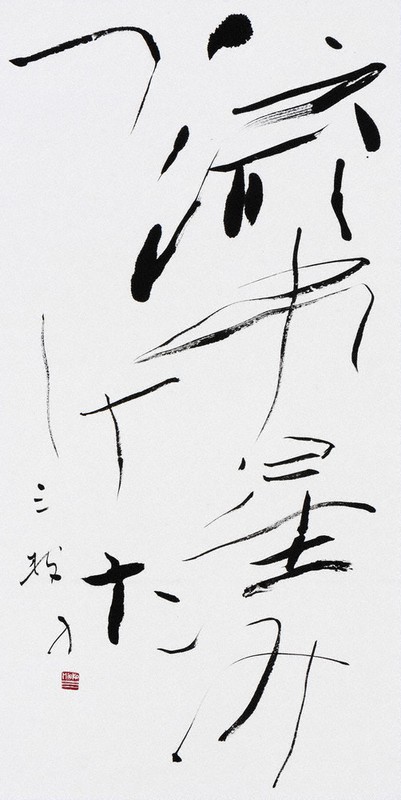 流れ星み
つけた
三枝子